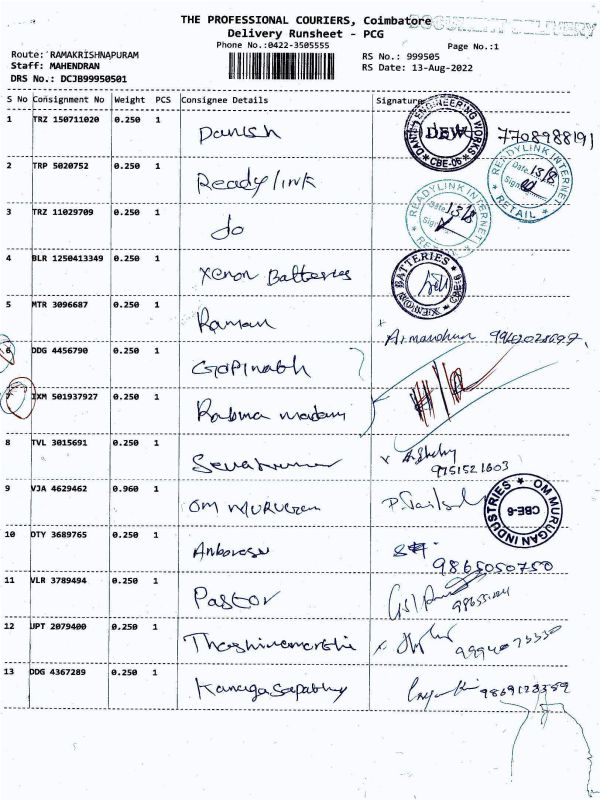 THE PROFESSIONAL COURIERS, Coimbatore
DOCUMENT DELIVERY
Delivery Runsheet - PCG
Phone No.:0422-3505555
Page No.:1
Route: RAMAKRISHNAPURAM
RS No.: 999505
Staff: MAHENDRAN
RS Date: 13-Aug-2022
DRS No.: DCJB99950501
S No Consignment No Weight PCS Consignee Details Signature
1 TRZ 150711020 0.250 1 Danish ENGINEERING WORKS DEW * CBE-06 * 7708988191
2 TRP 5020752 0.250 1 Readylink READYLINK INTERNET Date 13/8 Sign * RETAIL *
3 TRZ 11029709 0.250 1 do READYLINK INTERNET Date 13/8 Sign
4 BLR 1250413349 0.250 1 Xenon Batteries XENON BATTERIES
5 MTR 3096687 0.250 1 Raman
6 DDG 4456790 0.250 1 Gopinath
7 IXM 501937927 0.250 1
8 TVL 3015691 0.250 1 9751521603
9 VJA 4629462 0.960 1 OM MURUGAN OM MURUGAN INDUSTRIES CBE-6
10 DTY 3689765 0.250 1 9865050750
11 VLR 3789494 0.250 1 Pastor
12 JPT 2079400 0.250 1
13 DDG 4367289 0.250 1